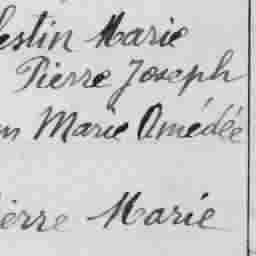 lestin Marie
Pierre Joseph
Marie Amédée
ierre Marie